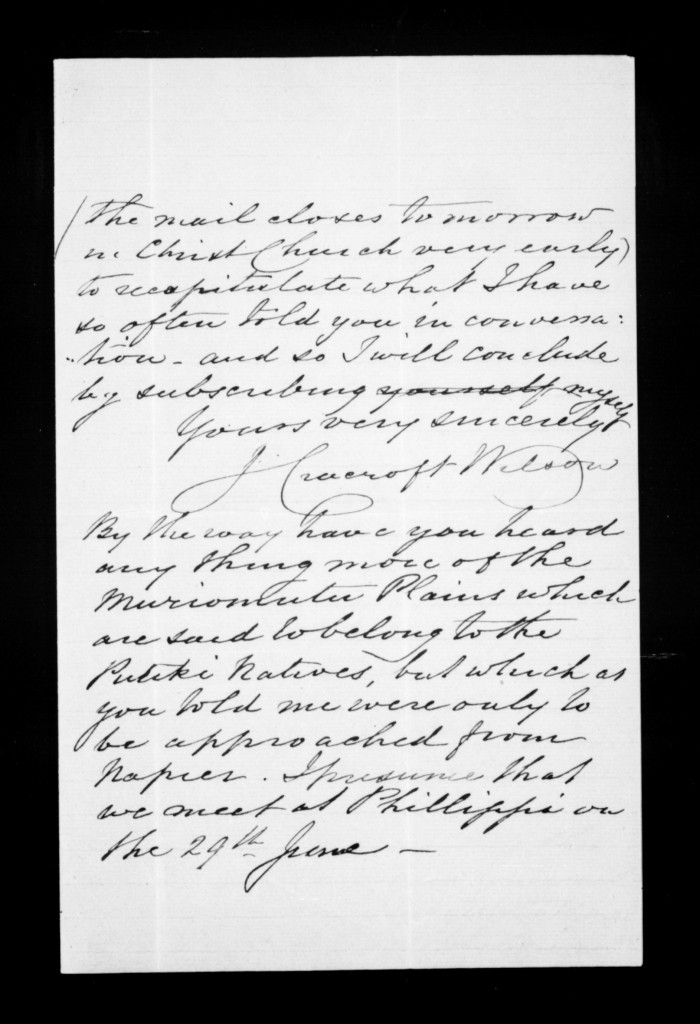 (the mail closes to morrow
in Christ Church very early)
to recapitulate what I have
so often told you in conversa:
:tion - and so I will conclude
by subscribing yourself myself
Yours very sincerely
J. Cracroft Wilson
By the way have you heard
any thing more of the
Muriomutu Plains which
are said to belong to the
Putiki Natives, but which as
you told me were only to
be approached from
Napier. I presume that
we meet at Phillippi on
the 29th June -